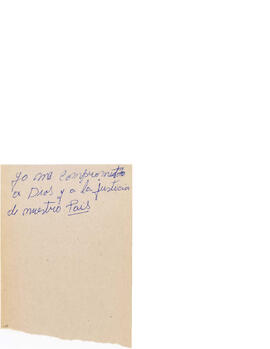 Yo me comprometo
a Dios y a la justicia
de nuestro País